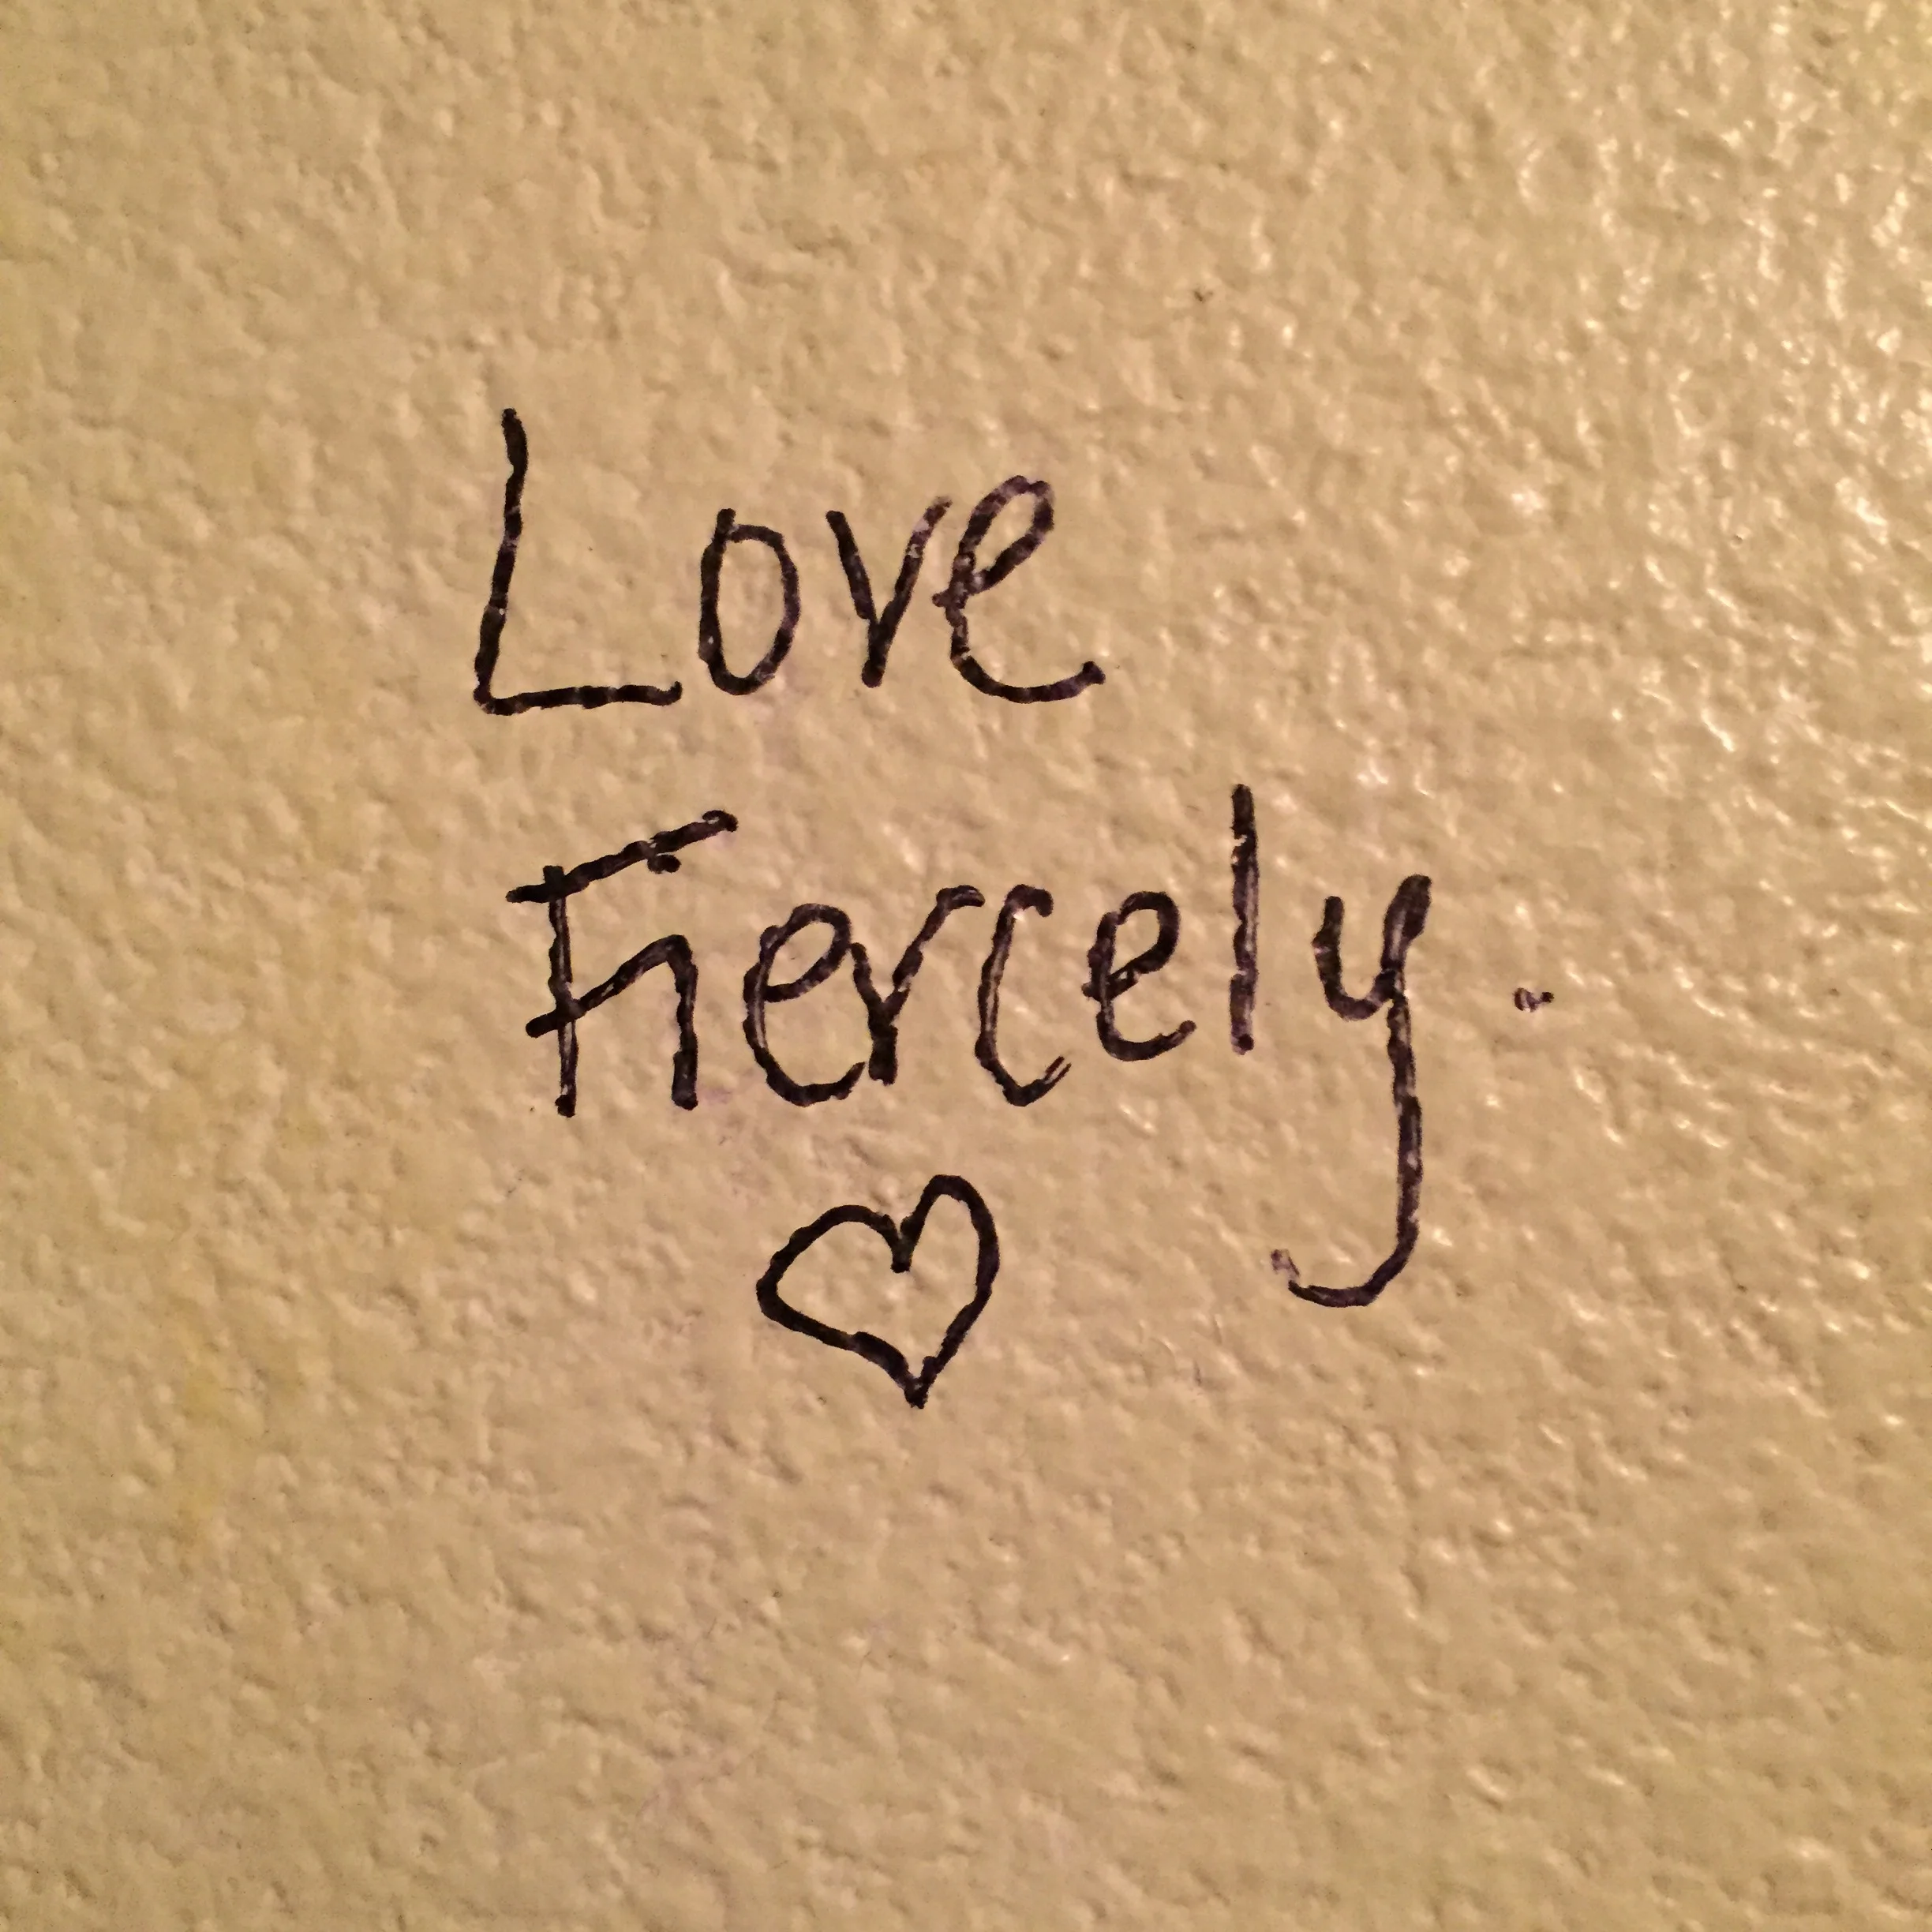 Love
Fiercely.